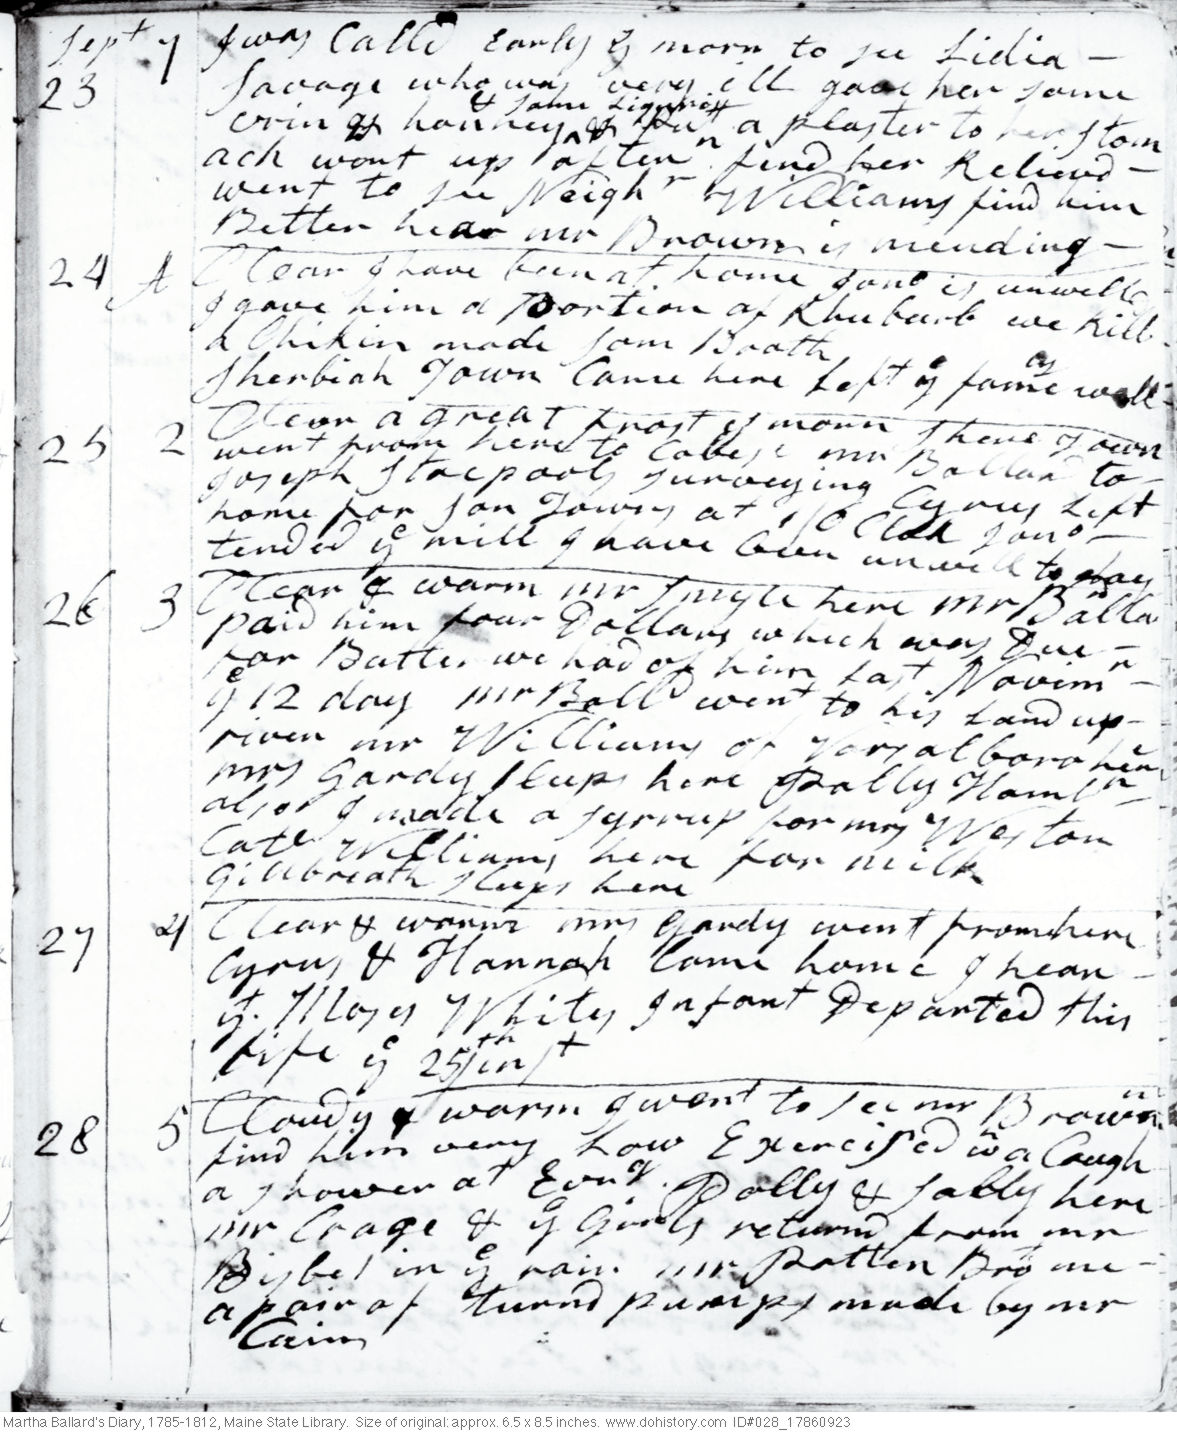 Sept 7 I was Calld Early ye morn to see Lidia -
23 Savage who was very ill gave her some
& some Liquris
urin & honney & put a plaster to her Stom
ach went up aftern find her Relievd -
went to see Neighr Williams find him
Better hear mr Brown is mending -
24 A Clear I have been at home Jono is unwell
I gave him a Portion of Rhubarb we kill
a Chikin made som Broath
Sherbiah Town Came here Left ye fame as well
25 2 Clear a great frost ys morn Shere Town
went from here to Cobese mr Ballard to
Joseph Stacpools surveying Cyrus Left
home for Son Towns at 1 O Clok Jono -
tended ye mill I have been unwell to day
26 3 Clear & warm mr Smyle here mr Ballard
paid him four Dollars which was Due -
for Butter we had of him Last Novimr -
ye 12 day mr Balld went to his Land up -
river mr Williams of Varsalboro here
mrs Gardy sleeps here Polly Hamln -
also I made a syrrup for mrs Weston
Cate Williams here for milk
Gillbreath sleeps here
27 4 Clear & warm mrs Gardy went from here
Cyrus & Hannah Came home I hear -
yt. Moses Whites Infant Departed this
Life ye 25th inst
28 5 Cloudy & warm I went to see mr Brown
find him very Low Exercised wt a Cough
a shower at Evng. Dolly & Sally here
mr Crage & ye Girls returnd from mr
Bisbes in ye rain. mr Patten Brot me -
a pair of turnd pumps made by mr
Cain
Martha Ballard's Diary, 1785-1812, Maine State Library. Size of original: approx. 6.5 x 8.5 inches. www.dohistory.com ID#028_17860923